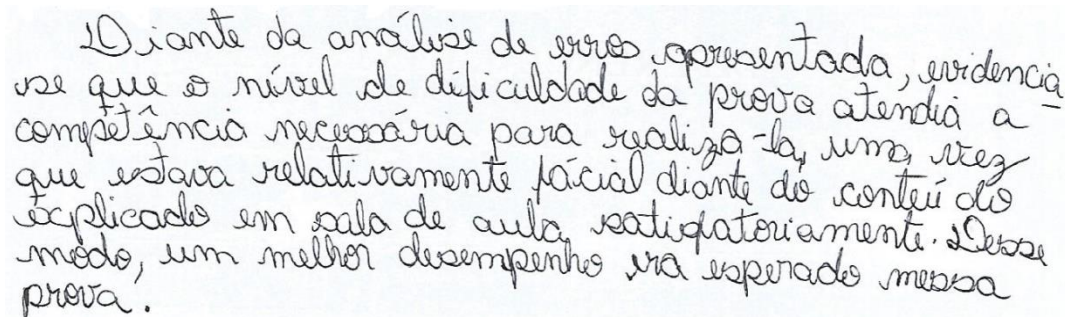 Diante da análise de erros apresentada, evidencia-
se que o nível de dificuldade da prova atendia a
competência necessária para realizá-la, uma vez
que estava relativamente fácial diante do conteúdo
explicado em sala de aula satisfatoriamente. Desse
modo, um melhor desempenho era esperado nessa
prova.